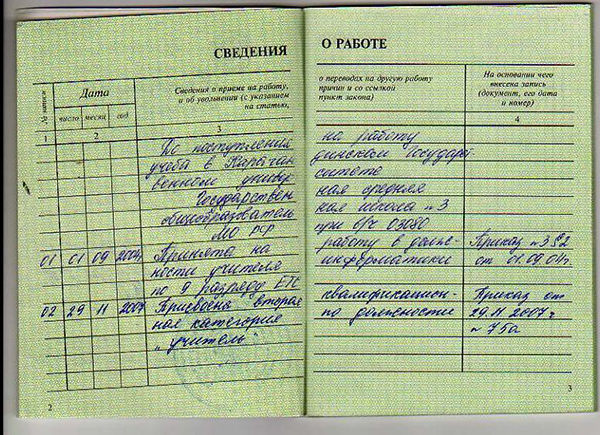 СВЕДЕНИЯ
№ записи
Дата
число
месяц
год
Сведения о приеме на работу,
и об увольнении (с указанием
на статью,
1
2
3
До поступления
учеба в Караган
венном универ
Государствен
общеобразователь
МО РФ
01 01 09 2004 Принята на
ности учителя
по 9 разряду ЕТС
02 29 11 2007 Присвоена вторая
ная категория
„учитель"
2
О РАБОТЕ
о переводах на другую работу
причин и со ссылкой
пункт закона)
На основании чего
внесена запись
(документ, его дата
и номер)
4
на работу
динском Государст
ситете
ная средняя
ная школа №3
при в/ч 03080
работу в долж- Приказ №
информатики от 01.09.04г.
квалификацион- Приказ от
по должности 29.11.2007г
№ 75а
3